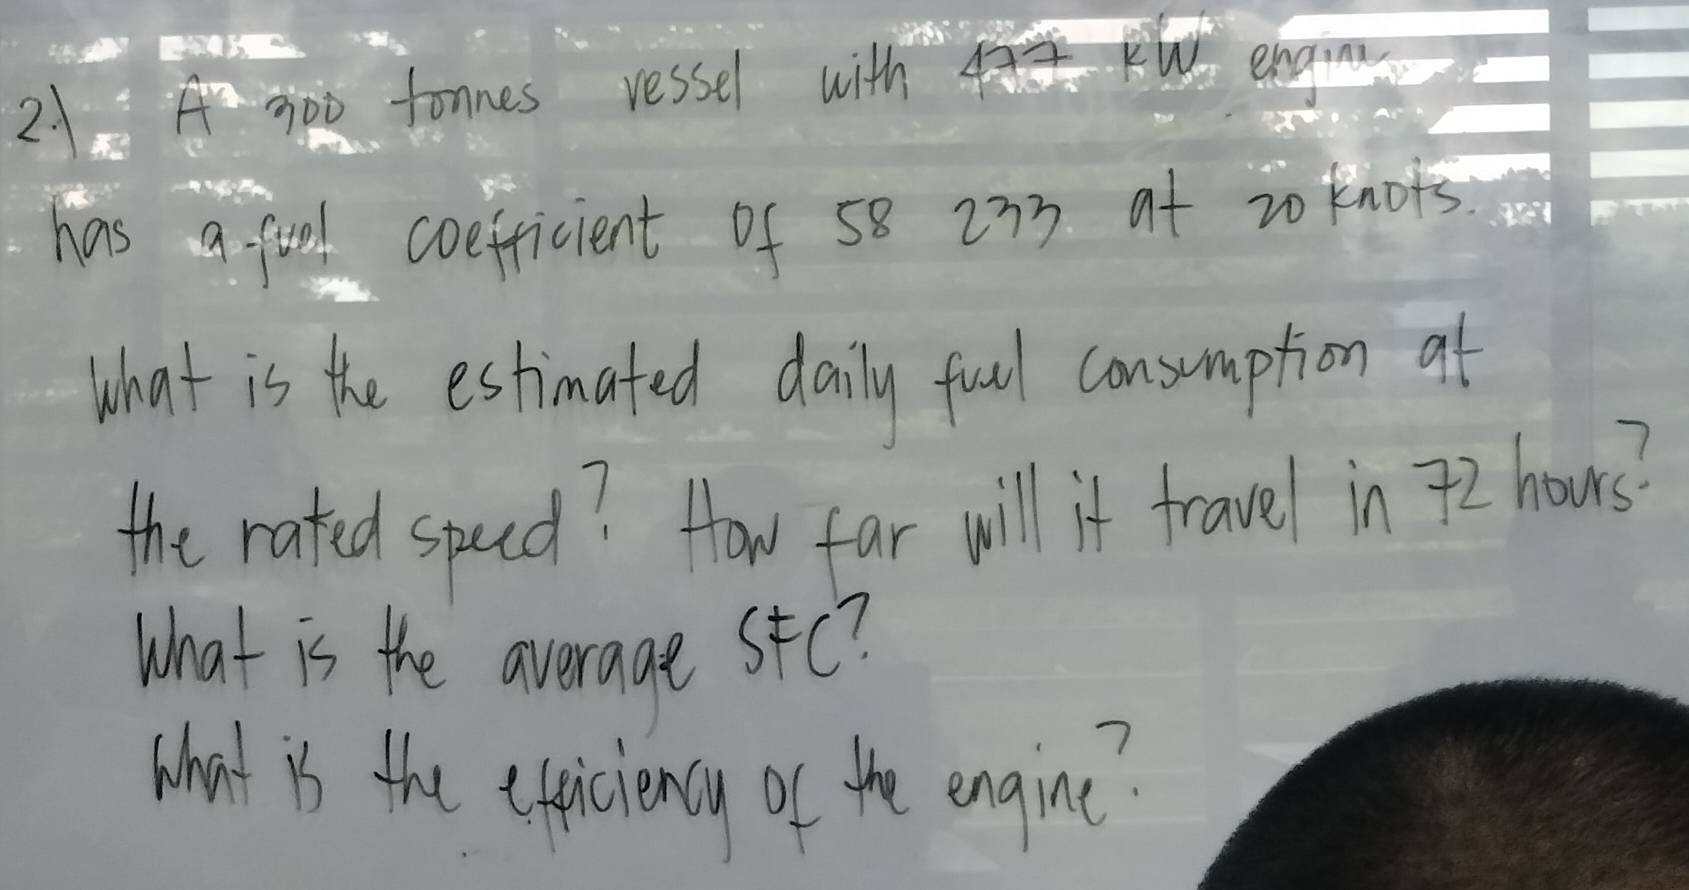 2.) A 300 tonnes vessel with 477 kW engine
has a fuel coefficient of 58 233 at 20 knots.
What is the estimated daily fuel consumption at
the rated speed? How far will it travel in 72 hours?
What is the average SFC?
What is the efficiency of the engine?